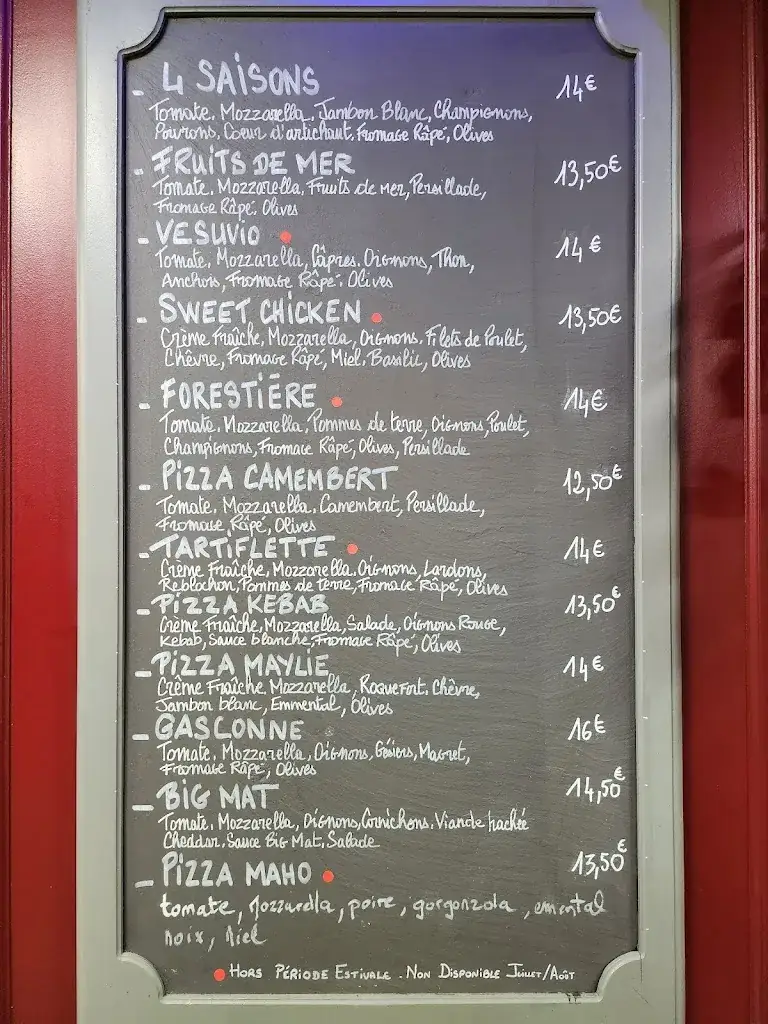 - 4 SAISONS 14€
Tomate, Mozzarella, Jambon Blanc, Champignons,
Poivrons, Coeur d'artichaut, Fromage Râpé, Olives
- FRUITS DE MER 13,50€
Tomate, Mozzarella, Fruits de mer, Persillade,
Fromage Râpé, Olives
- VESUVIO 14€
Tomate, Mozzarella, Câpres, Oignons, Thon,
Anchois, Fromage Râpé, Olives
- SWEET CHICKEN 13,50€
Crème Fraîche, Mozzarella, Oignons, Filets de Poulet,
Chèvre, Fromage Râpé, Miel, Basilic, Olives
- FORESTIÈRE 14€
Tomate, Mozzarella, Pommes de terre, Oignons, Poulet,
Champignons, Fromage Râpé, Olives, Persillade
- PIZZA CAMEMBERT 12,50€
Tomate, Mozzarella, Camembert, Persillade,
Fromage Râpé, Olives
- TARTIFLETTE 14€
Crème Fraîche, Mozzarella, Oignons, Lardons,
Reblochon, Pommes de terre, Fromage Râpé, Olives
- PIZZA KEBAB 13,50€
Crème Fraîche, Mozzarella, Salade, Oignons Rouge,
Kebab, Sauce blanche, Fromage Râpé, Olives
- PIZZA MAYLIE 14€
Crème Fraîche, Mozzarella, Roquefort, Chèvre,
Jambon blanc, Emmental, Olives
- GASCONNE 16€
Tomate, Mozzarella, Oignons, Gésiers, Magret,
Fromage Râpé, Olives
- BIG MAT 14,50€
Tomate, Mozzarella, Oignons, Cornichons, Viande hachée
Cheddar, Sauce Big Mat, Salade
- PIZZA MAHO 13,50€
tomate, Mozzarella, poire, gorgonzola, emental
noix, Miel
HORS PÉRIODE ESTIVALE. NON DISPONIBLE JUILLET/AOÛT